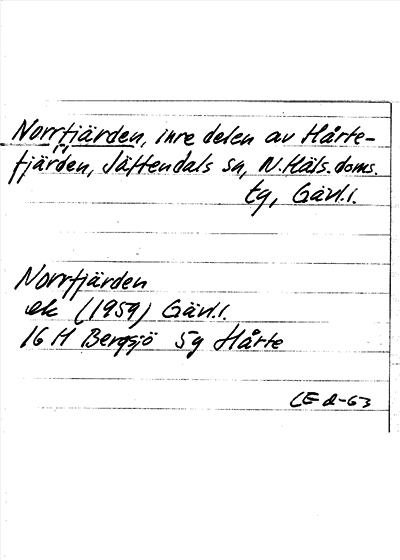 Norrfjärden, inre delen av Hårte-
fjärden, Jättendals sn, N. Häls. doms.
tg, Gävl.l.
Norrfjärden
ek (1959) Gävl.l.
16 H Bergsjö 5g Hårte